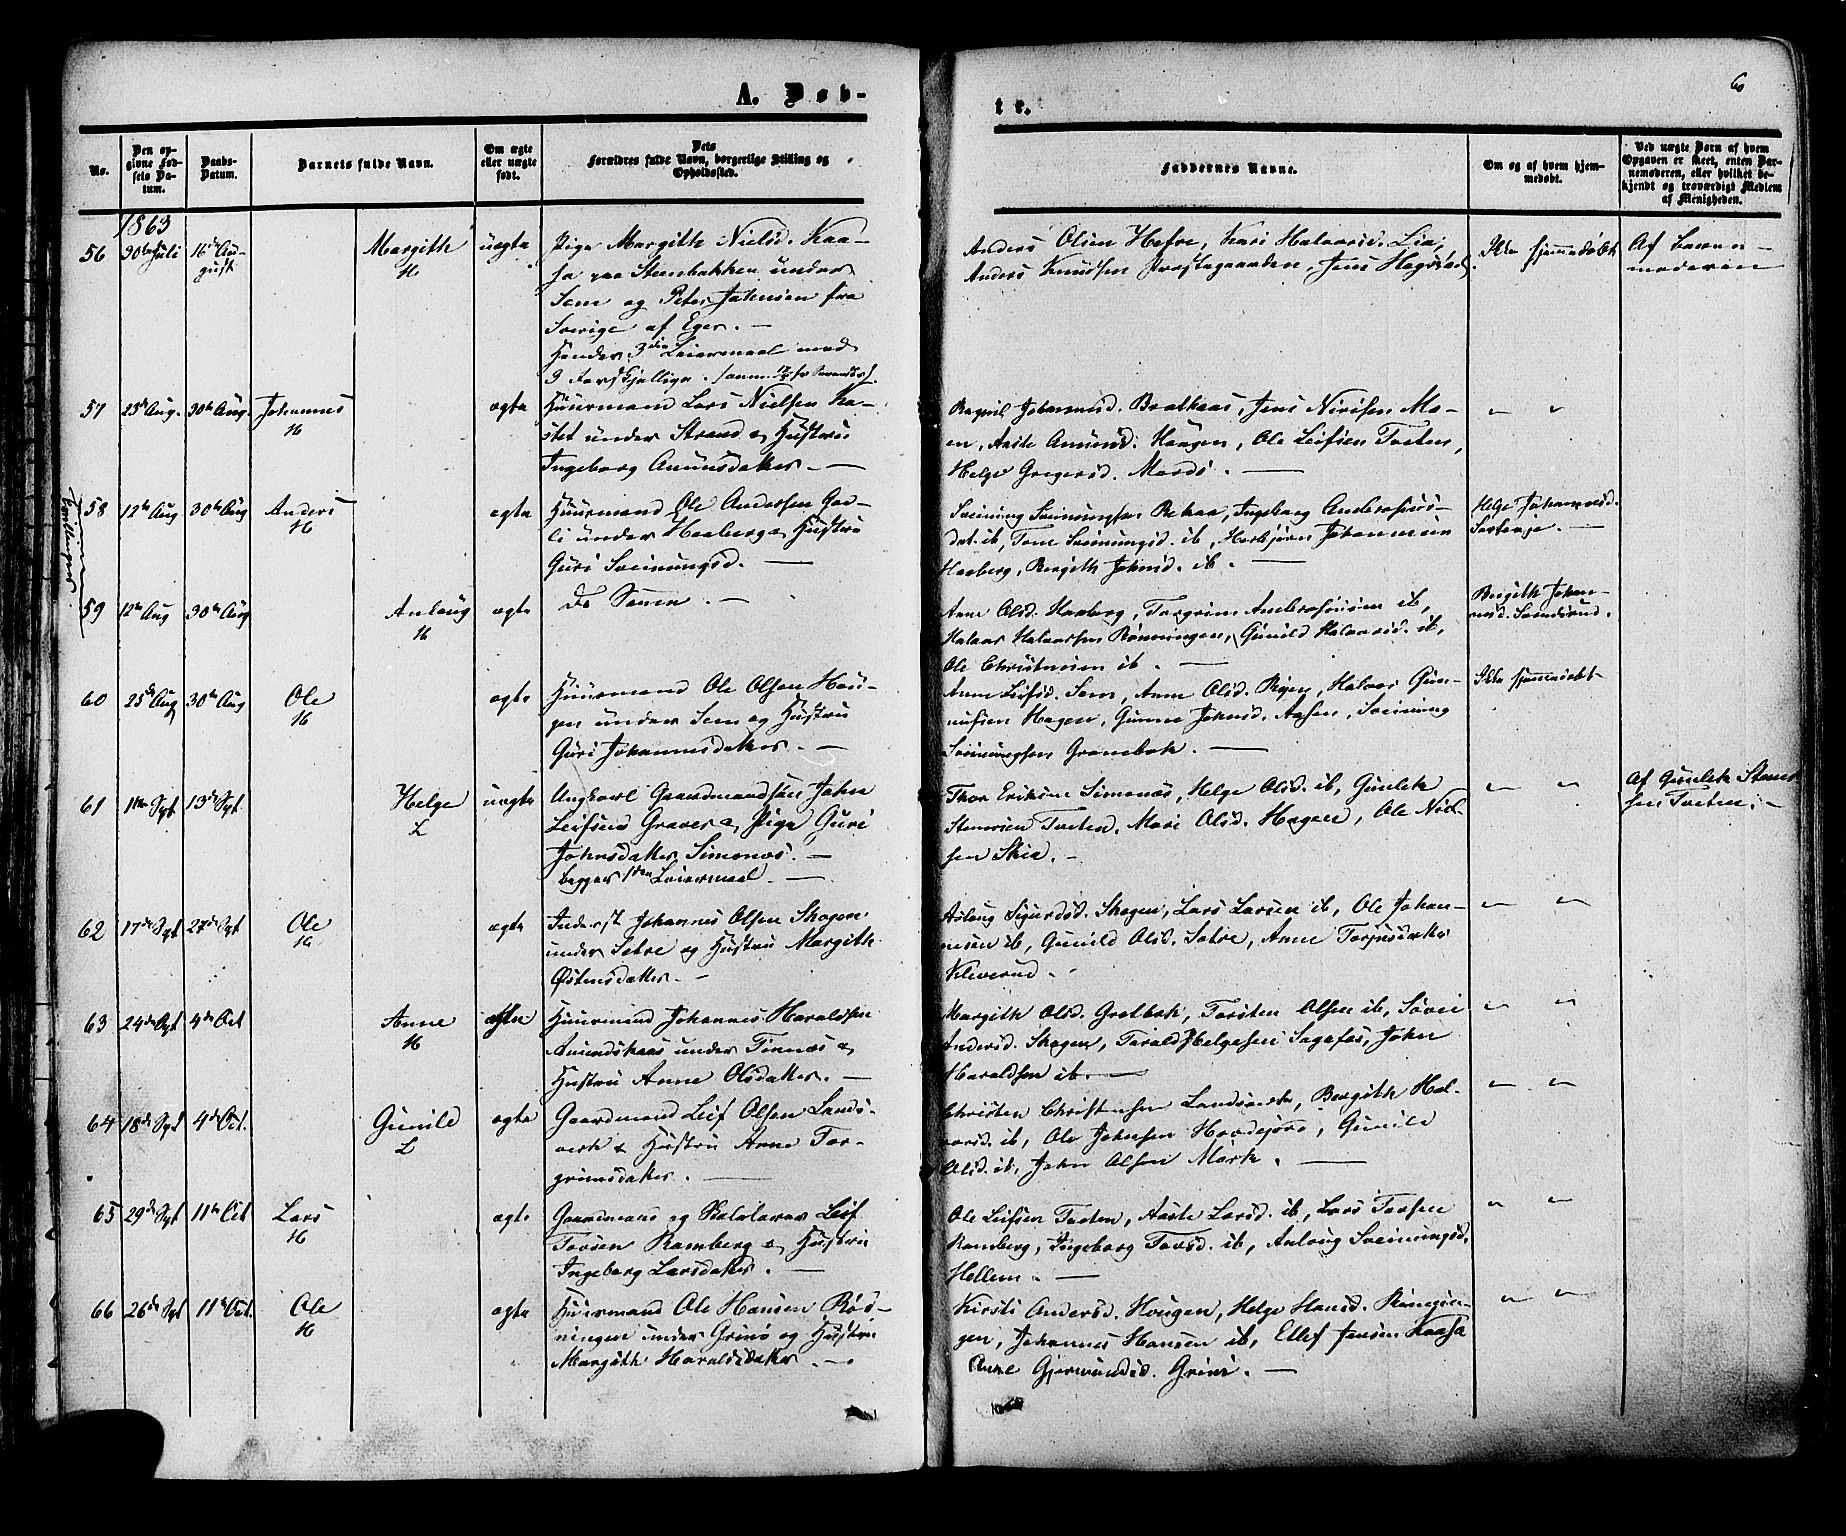 A. Døb-
te.
6
No.
Den op-
givne Fød-
sels Da-
tum.
Daabs-
Datum.
Barnets fulde Navn.
Om ægte
eller uægte
født.
Dets
Forældres fulde Navn, borgerlige Stilling og
Opholdssted.
Faddernes Navne.
Om og af hvem hjem-
medøbt.
Ved uægte Børn af hvem
Opgaven er skeet, enten Bar-
nemoderen, eller hvilket be-
kjendt og troværdigt Medlem
af Menigheden.
1863
56 30te Juli 16de Au-
gust
Margith
H
uægte
Pige Margith Nielsd. Kaa-
sa paa Steenbakken under
Sem og Peter Johnsen fra
Sverige af Eger. —
Hendes 3die Leiermaal med
3 forskjellige.
Anders Olsen Hefre, Kari Halvorsd. Lia,
Anders Knudsen Prestegaarden, Jens Hegstad,
Ikke hjemmedøbt.
Af Barne-
moderen
57 25de Aug. 30te Aug. Johannes
H
ægte
Huusmand Lars Nielsen Ka-
stet under Strand & Hustru
Ingeborg Amundsdatter. —
Johannesd. Bratkaas, Jens Nirisen Mo-
en, Aaste Amunds. Haugen, Ole Leifsen Tveten,
Helge Gregersd. Moods. —
" "
Tvillinger
58 12te Aug 30te Aug Anders
H
ægte
Huusmand Ole Andersen
under Haaberg & Hustru
Guri Sveinungsd. —
Sveinung Sveinungsen Bekaa, Ingeborg
dat. ib, Tone Sveinungsd. ib, Herbjørn Johannesen
Haaberg, Bergith Johnsd. ib. —
Helge Johannesd.
59 12te Aug 30te Aug
Anloug
H
ægte
De Samme. —
Anne Olsd. Haaberg, Torgrim Ambrosiussen ib,
Halvor Halvorsen Rønningen, Gunild Halvorsd. ib,
Ole Christensen ib. —
Birgith Johan-
nesd. Svendsrud.
60 25de Aug 30te Aug Ole
H
ægte
Huusmand Ole Olsen Hau-
gen under Sem og Hustru
Guri Johannesdatter. —
Anne Leifsd. Sem, Anne Olsd. Halvor Gun-
nufsen Hagen, Gunne Johnsd. Aasen, Sveinung
Sveinungsen Granebak. —
Ikke hjemmedøbt
61 1ste Spt 13de Spt
Helge
L
uægte
Ungkarl Gaardmandssøn John
Leifsen Graver & Pige Guri
Johnsdatter Simonæs. —
begges 1ste Leiermaal. —
Thor Eriksen Simonæs, Helge Olsd. ib, Gunlek
Stenersen Tveten, Mari Olsd. Hagen, Ole Niel-
sen Skia. —
" "
Af Gunlek Stener-
sen Tveten. —
62 17de Spt 27de Spt Ole
H
ægte
Inderst Johannes Olsen Skogen
under Setre og Hustru Margith
Østensdatter. —
Aslaug Sigurdsd. Skogen, Lars Larsen ib, Ole Johan-
nesen ib, Gunild Olsd. Satre, Anne Torjusdatter
Kleverud. —
" "
63 24de Spt 4de Oct
Anne
H
ægte
Huusmand Johannes Haraldsen
Amundskaas under Tinnæs &
Hustru Anne Olsdatter. —
Margith Olsd. Gretbak, Torsten Olsen ib, Søvei
Andersd. Skogen, Torald Helgesen Sagafos, John
Haraldsen ib. —
" "
64 18de Spt 4de Oct.
Gunild
L
ægte
Gaardmand Leif Olsen Lands-
verk & Hustru Anne Tor-
grimsdatter. —
Christen Christensen Landsverk, Bergith Hal-
vorsd. ib, Ole Johnsen Hovdejore, Gunild
Olsd. ib, John Olsen Mork. —
" "
65 29de Spt 11te Oct Lars
H
ægte
Gaardmand og Skolelærer Leif
Torsen Ramberg & Hustru
Ingeborg Larsdatter. —
Ole Leifsen Tveten, Aaste Larsd. ib, Lars Torsen
Ramberg, Ingeborg Torsd. ib, Anloug Sveinungsd.
Hellem. —
" "
66 26de Spt 11te Oct. Ole
H
ægte
Huusmand Ole Hansen Røn-
ningen under Grini og Hustru
Margith Haraldsdatter. —
Kirsti Andersd. Hougen, Helge Hansd. Rønnin-
gen, Johannes Hansen ib, Ellef Jensen Kaasa
Anne Gjermundsd. Grini. —
" "